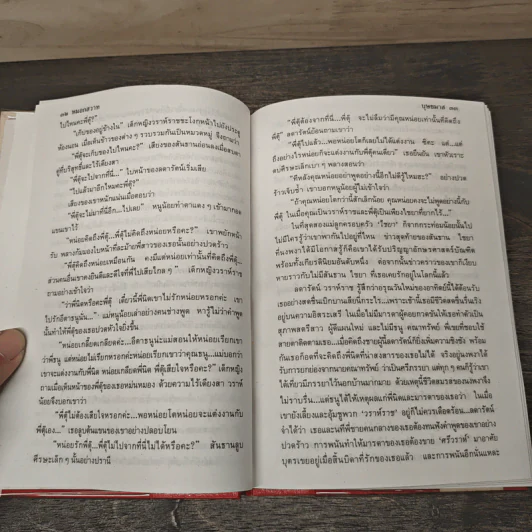 ๓๒ หมอกสวาท
ไปไหนคะพี่ตุ้?"
"เก็บของอยู่ข้างใน" เด็กหญิงวราห์ราชชะโงกหน้าไปยังประตู
ห้องนอน เมื่อเห็นข้าวของต่าง ๆ รวบรวมกันเป็นหมวดหมู่ จึงถามว่า
"พี่ตุ้จะเก็บของไปไหนคะ?" เสียงของสันธานอ่อนลงเมื่อตอบ
"พี่ตุ้จะไปจากที่นี่..." ใบหน้าของลดารัตน์เริ่มเสีย
"ไปแล้วมาอีกไหมคะพี่ตุ้?"
เสียงของเราหนักแน่นเมื่อตอบว่า
"พี่ตุ้จะไม่มาที่นี่อีก...ไปเลย" หนูน้อยทำตาแดง ๆ เข้ามากอด
แขนเขาไว้
"หน่อยคิดถึงพี่ตุ้...พี่ตุ้คิดถึงหน่อยหรือคะ?" เขาพยักหน้า
รับ พลางก้มมองใบหน้าที่ละม้ายพี่สาวของเธอนั้นอย่างปวดร้าว
"พี่ตุ้คิดถึงหน่อยเหมือนกัน คงมีแต่หน่อยเท่านั้นที่คิดถึงพี่ตุ้
ส่วนคนอื่นเขาคงยินดีและดีใจที่พี่ไปเสียไกล ๆ" เด็กหญิงวราห์ราช
ถามอย่างเข้าใจ
"ว่าพี่นิดหรือคะพี่ตุ้ เดี๋ยวนี้พี่นิดเขาไม่รักหน่อยหรอกค่ะ เขา
ไปรักอีตาธนูน่ะ..." แม่หนูน้อยเล่าอย่างคนช่างพูด หารู้ไม่ว่าคำพูด
นั้นทำให้พี่ตุ้ของเธอปวดหัวใจยิ่งขึ้น
"หน่อยเกลียดค่ะ...อีตาธนูน่ะแม่สอนให้หน่อยเรียกเขา
ว่าพี่ธนู แต่หน่อยไม่เรียกหรอกค่ะหน่อยเรียกเขาว่าคุณธนู...แม่บอกว่า
เขาจะแต่งงานกับพี่นิด หน่อยเกลียดพี่นิด พี่ตุ้เสียใจไหมคะ?" เด็กหญิง
ถามเมื่อเห็นหน้าของพี่ตุ้ของเธอหม่นหมอง ด้วยความไร้เดียงสา วราห์
น้อยจึงบอกเขาว่า
"พี่ตุ้ไม่ต้องเสียใจหรอกค่ะ...พอหน่อยโตหน่อยจะแต่งงานกับ
พี่ตุ้เอง..." เธอลูบต้นแขนของเขาอย่างปลอบโยน
"หน่อยรักพี่ตุ้...พี่ตุ้ไม่ไปจากที่นี่ไม่ได้หรือคะ?" สันธานลูบ
ศีรษะเล็ก ๆ นั้นอย่างปรานี
บุษยมาส ๓๓
"พี่ตุ้ต้องจากที่นี่...พี่ตุ้ จะไม่ลืมว่ามีคุณหน่อยเท่านั้นที่คิดถึง
พี่ตุ้" ลดารัตน์อ้อนถามเขาว่า
"พี่ตุ้ไปแล้ว...พอหน่อยโตก็เลยไม่ได้แต่งงาน ซีคะ แต่...แต่
ถึงอย่างไรหน่อยก็จะแต่งงานกับพี่ตุ้คนเดียว" เธอยืนยัน เขาหัวเราะ
ตบศีรษะเล็กเบา ๆ พลางสอนว่า
"ทีหลังคุณหน่อยอย่าพูดอย่างนี้อีกไม่ดีรู้ไหมฮะ?" อย่างปวด
ร้าวเจ็บช้ำ เขาบอกหนูน้อยผู้ไม่เข้าใจว่า
"ถ้าคุณหน่อยโตกว่านี้สักเล็กน้อย คุณหน่อยคงจะไม่พูดอย่างนี้กับ
พี่ตุ้ ในเมื่อคุณเป็นวราห์ราชและพี่ตุ้เป็นเพียงไชยาที่ยากไร้..."
ในที่สุดสองแม่ลูกครอบครัว "ไชยา" ก็จากกระท่อมน้อยนั้นไป
ไม่มีใครรู้ว่าเขาพากันไปอยู่ที่ไหน ข่าวสุดท้ายของสันธาน ไชยา
ที่นงพงาได้มีโอกาสรู้ก็คือเขาได้รับปริญญาอักษรศาสตร์บัณฑิต
พร้อมทั้งเกียรตินิยมอันดับหนึ่ง ต่อจากนั้นข่าวคราวของเขาก็เงียบ
หายราวกับไม่มีสันธาน ไชยา ที่เธอเคยรักอยู่ในโลกนี้แล้ว
ลดารัตน์ วราห์ราช รู้สึกว่าอรุณวันใหม่ของอาทิตย์นี้ได้ต้อนรับ
เธออย่างสดชื่นเบิกบานเสียนี่กระไร...เพราะเช้านี้เธอมีชีวิตสดชื่นรื่นเริง
อยู่บนความอิสระเสรี ในเมื่อไม่มีมารดาผู้คอยกวดขันให้เธอทำตัวเป็น
สุภาพสตรีสาว ผู้ดีแผนใหม่ และไม่มีธนู คณาทรัพย์ พี่เขยที่ชอบใช้
สายตาติดตามเธอ...เมื่อคิดถึงชายผู้นี้ลดารัตน์ก็ยิ่งเพิ่มความชิงชัง พร้อม
กันเธอก็อดที่จะคิดถึงพี่นิดที่น่าสงสารของเธอไม่ได้ จริงอยู่นงพงาได้
รับการยกย่องจากนายคณาทรัพย์ ว่าเป็นศรีภรรยา แต่ทุก ๆ คนก็รู้ว่าเขา
ได้เที่ยวมีภรรยาไว้นอกบ้านมากมาย ด้วยเหตุนี้ชีวิตสมรสของนงพงาจึง
ไม่ราบรื่น...แต่ธนูได้ให้เหตุผลแก่พี่นิดและมารดาของเธอว่า ในเมื่อ
เขายังเลี้ยงและอุ้มชูพวก "วราห์ราช" อยู่ก็ไม่ควรเดือดร้อน...ลดารัตน์
จำได้ว่า เธอและนทีพี่ชายคนกลางของเธอต้องทนฟังคำพูดของเขาอย่าง
ปวดร้าว การพนันทำให้มารดาของเธอต้องขาย "ศรีวราห์" มาอาศัย
บุตรเขยอยู่เมื่อสิ้นบิดาที่รักของเธอแล้ว และการพนันอีกนั่นแหละ